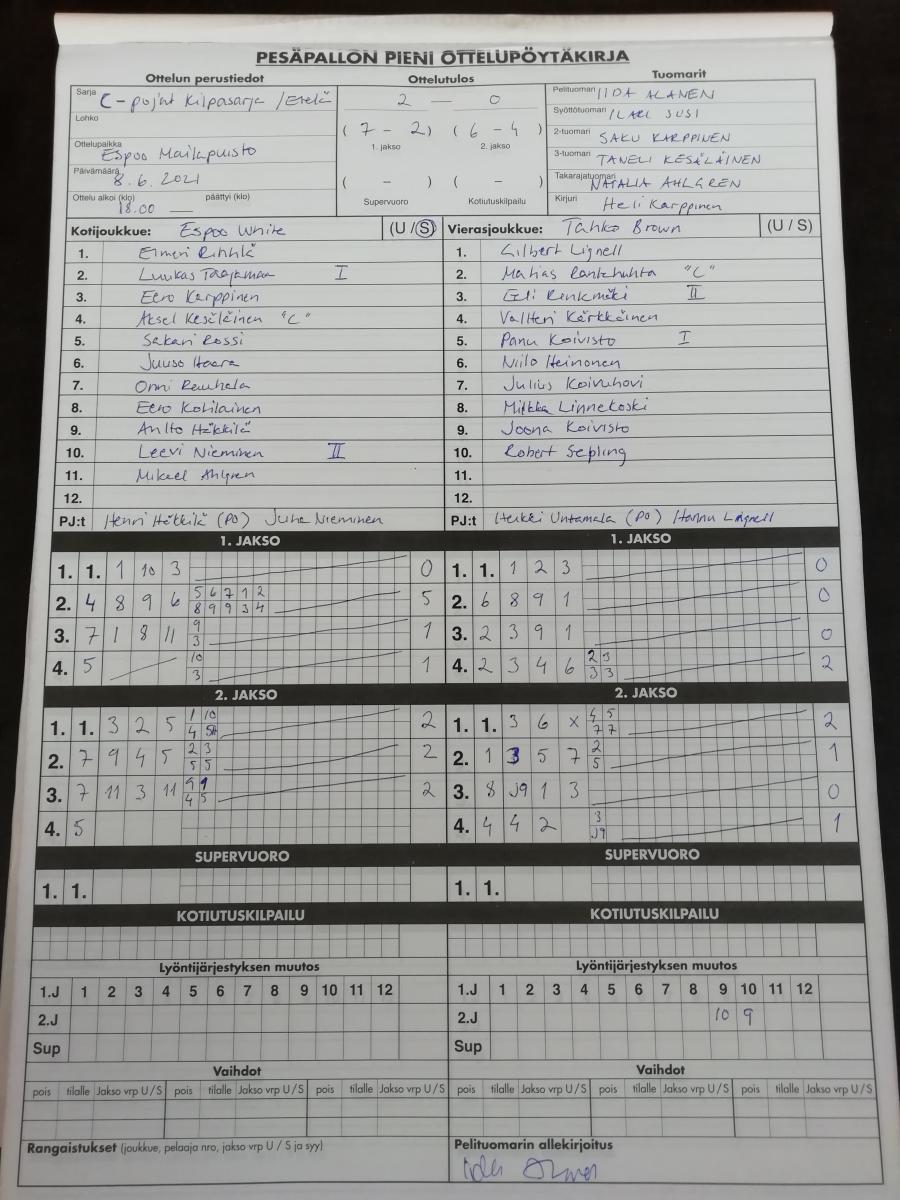 PESÄPALLON PIENI OTTELUPÖYTÄKIRJA
Ottelun perustiedot
Sarja C-pojat Kilpasarja /Etelä
Lohko
Ottelupaikka Espoo Mailapuisto
Päivämäärä 8.6.2021
Ottelu alkoi (klo) 18.00 — päättyi (klo)
Ottelutulos
2 — 0
(7 - 2) (6 - 4)
1. jakso 2. jakso
( - ) ( - )
Supervuoro Kotiutuskilpailu
Tuomarit
Pelituomari IIDA ALANEN
Syöttötuomari ILARI SUSI
2-tuomari SAKU KARPPINEN
3-tuomari TANELI KESÄLÄINEN
Takarajatuomari NATALIA AHLGREN
Kirjuri Heli Karppinen
Kotijoukkue: Espoo White (U / S)
1. Elmeri
2. Luukas I
3. Eero Karppinen
4. Aksel Kesäläinen "C"
5. Sakari Rossi
6. Juuso Haara
7. Onni Rauhala
8. Eero Kotilainen
9. Häkkilä
10. Leevi Nieminen II
11. Mikael Ahlgren
12.
PJ:t Henri Häkkilä (PO) Juha Nieminen
Vierasjoukkue: Tahko Brown (U / S)
1. Gilbert Lignell
2. Matias Rantahuhta "C"
3. Eeli Renkmäki II
4. Valtteri Kärkkäinen
5. Panu Koivisto I
6. Niilo Heinonen
7. Julius Koivuhovi
8. Miikka Linnekoski
9. Joona Koivisto
10. Robert Sepling
11.
12.
PJ:t Heikki Untamala (PO) Hannu Lignell
1. JAKSO
1. 1. 1 10 3 0
2. 4 8 9 6 5 6 7 1 2 5
8 9 9 3 4
3. 7 1 8 11 9 1
3
4. 5 10 1
3
1. JAKSO
1. 1. 1 2 3 0
2. 6 8 9 1 0
3. 2 3 9 1 0
4. 2 3 4 6 2 3 2
3 3
2. JAKSO
1. 1. 3 2 5 1 10 2
4
2. 7 9 4 5 2 3 2
5 5
3. 7 11 3 11 9 1 2
4 5
4. 5
2. JAKSO
1. 1. 3 6 x 4 5 2
7 7
2. 1 3 5 7 2 1
5
3. 8 J9 1 3 0
4. 4 4 2 3 1
J9
SUPERVUORO
1. 1.
SUPERVUORO
1. 1.
KOTIUTUSKILPAILU
KOTIUTUSKILPAILU
Lyöntijärjestyksen muutos
1.J 1 2 3 4 5 6 7 8 9 10 11 12
2.J
Sup
Lyöntijärjestyksen muutos
1.J 1 2 3 4 5 6 7 8 9 10 11 12
2.J 10 9
Sup
Vaihdot
pois tilalle Jakso vrp U / S pois tilalle Jakso vrp U / S pois tilalle Jakso vrp U / S
Vaihdot
pois tilalle Jakso vrp U / S pois tilalle Jakso vrp U / S pois tilalle Jakso vrp U / S
Rangaistukset (joukkue, pelaaja nro, jakso vrp U / S ja syy)
Pelituomarin allekirjoitus